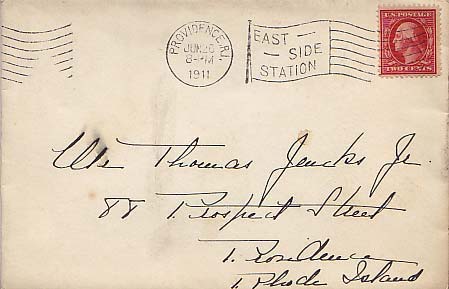 PROVIDENCE, R.I.
JUN 20
8-PM
1911
EAST
SIDE
STATION
U.S. POSTAGE
TWO CENTS
Mr Thomas Jencks Jr.
88 Prospect Street
Providence
Rhode Island